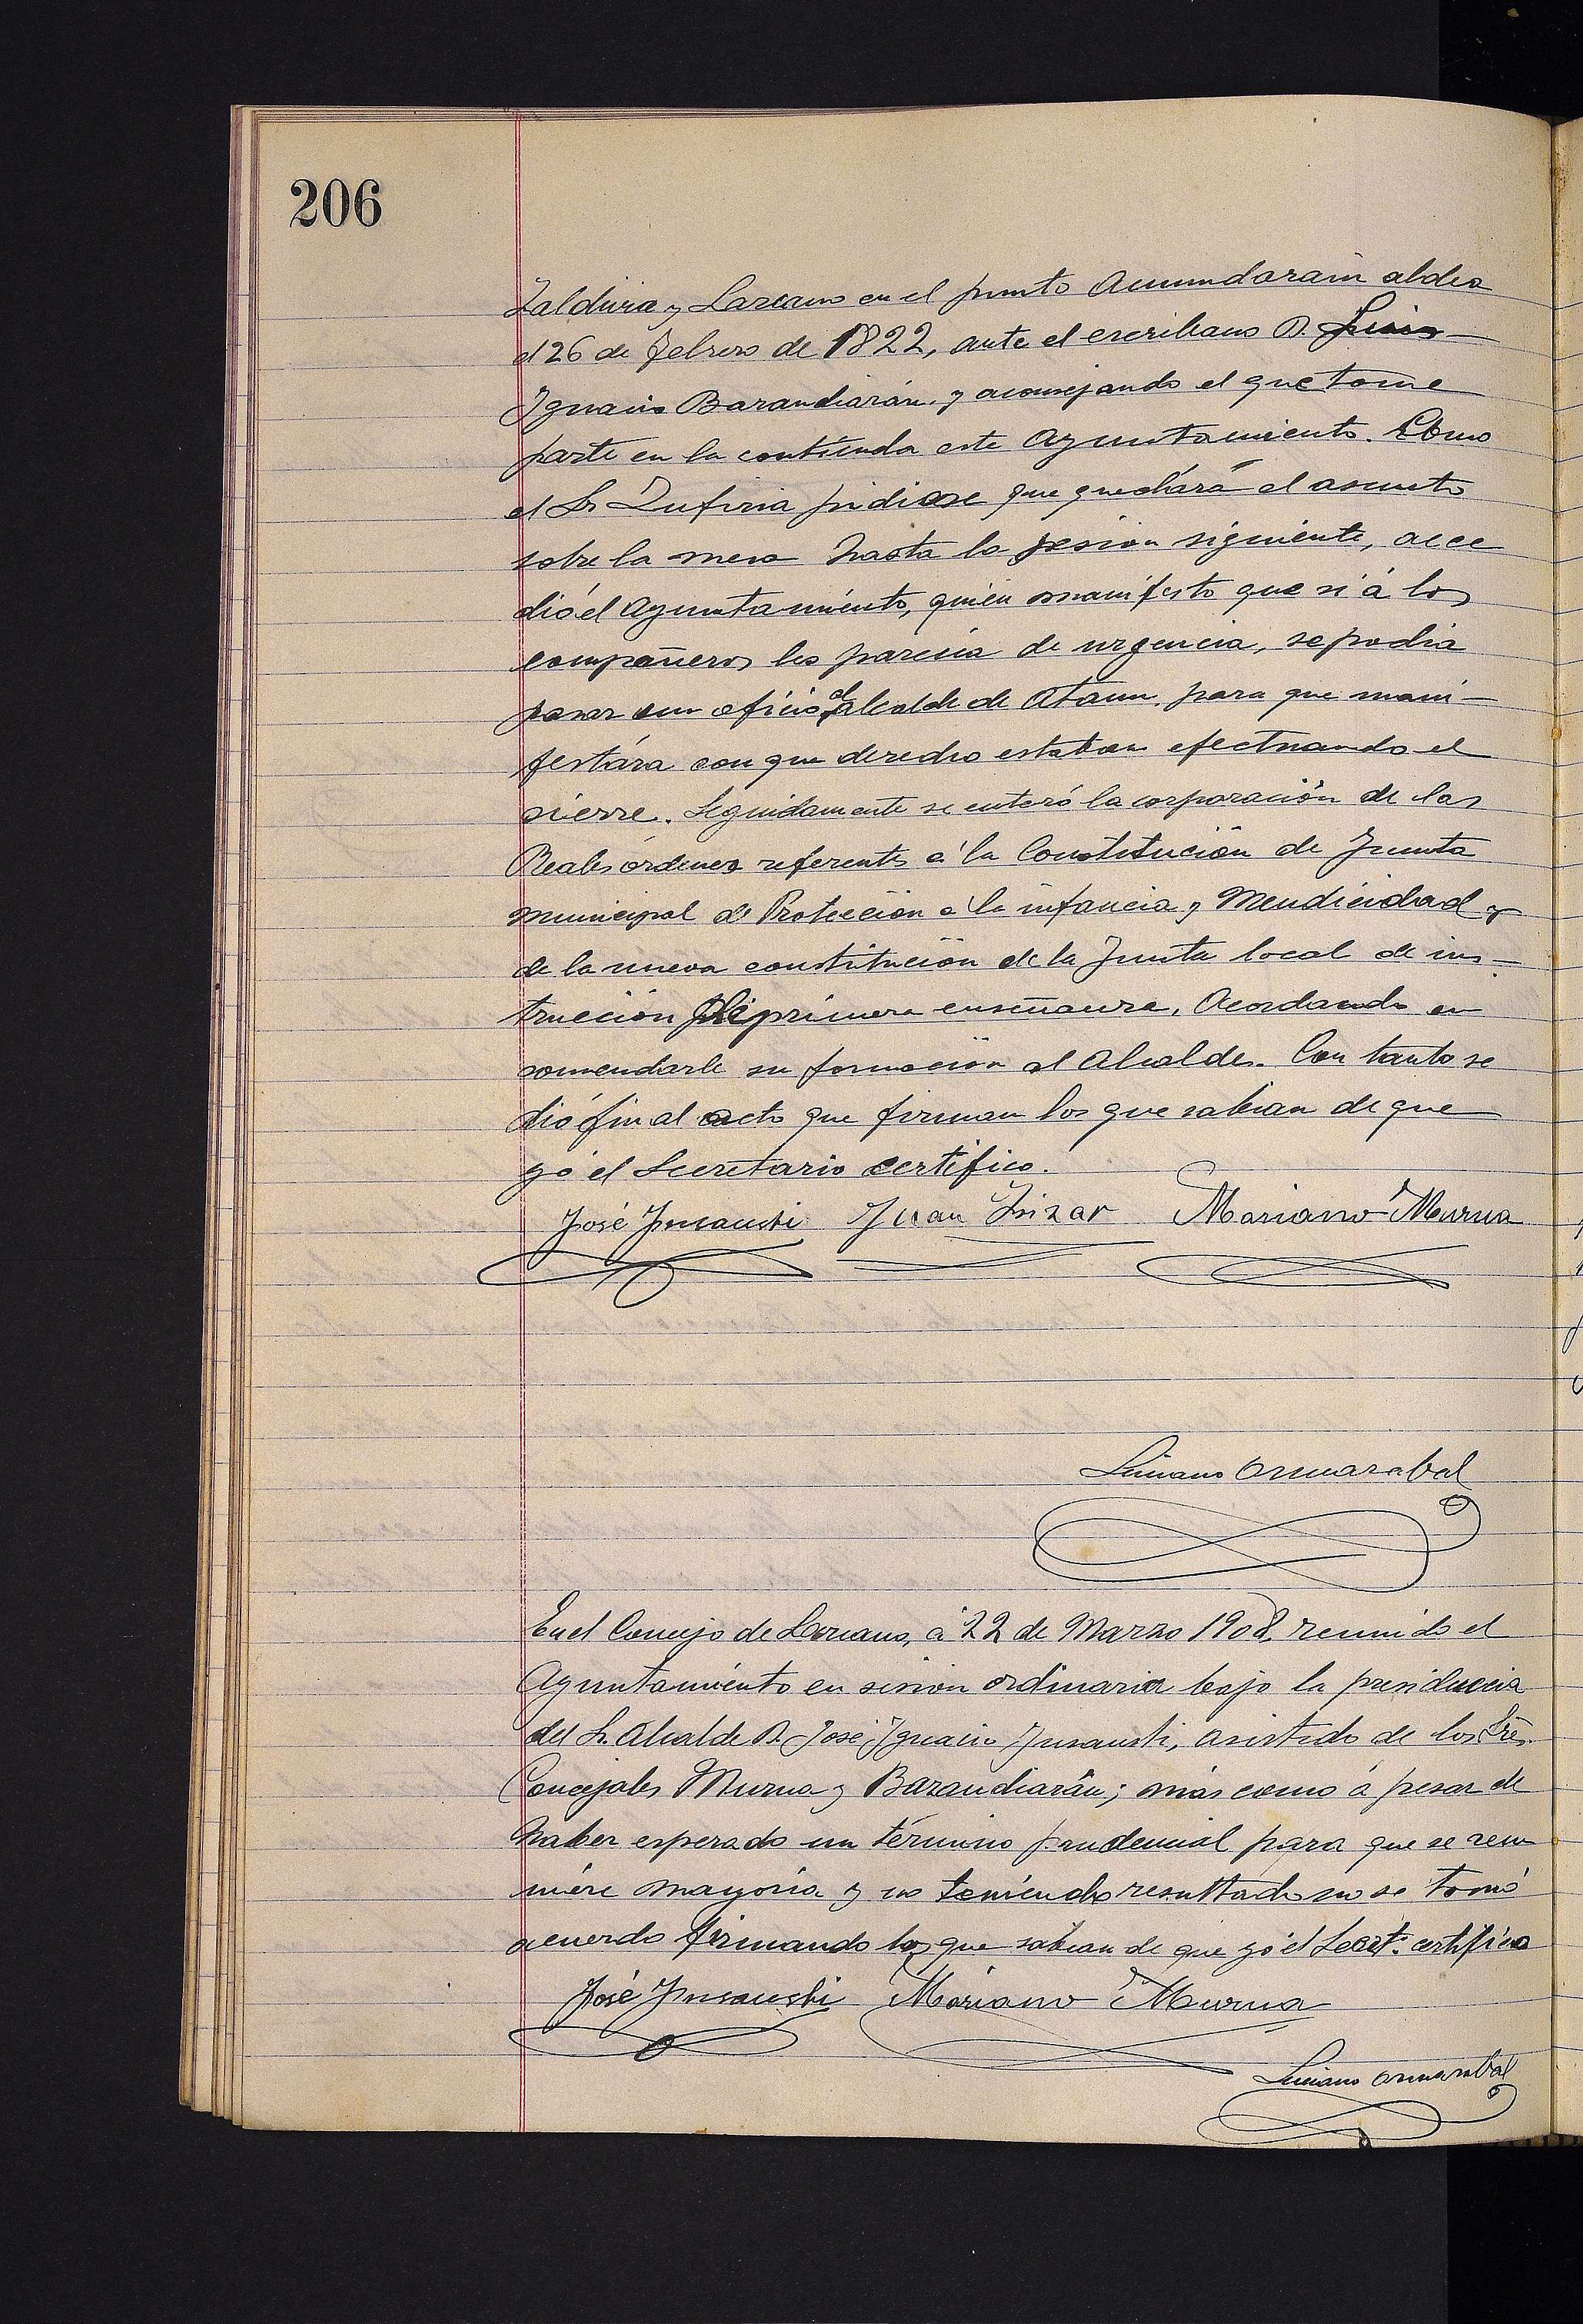 206
Zaldivia y Lazcano en el punto Aumundarain aldea
el 26 de febrero de 1822, ante el escribano D.
Ignacio Barandiarán. y aconsejando el que tome
parte en la contienda este Ayuntamiento. Como
el Sr Zufiria pidiese que quedárá el asunto
sobre la mesa hasta la sesion siguiente, acce
dió el Ayuntamiento, quien manifesto que si á los
compañeros les parecia de urgencia, se podia
pasar un oficio al alcalde de Ataun. para que mani-
festára con que derecho estaban efectuando el
sierre. Seguidamente se enteró la corporación de las
Reales órdenes referentes á la Constitución de Junta
municipal de Protección a la infancia y Mendicidad y
de la nueva constitución de la Junta local de ins-
trucción primera enseñanza, Acordando en
comendarle su formación al Alcalde. Con tanto se
dió fin al acto que firman los que sabian de que
yó el Secretario certifico.
José Insausti Juan Irizar Mariano Murua
Luciano Armarabal
En el Concejo de Lazcano, á 22 de Marzo 1908, reunido el
Ayuntamiento en sesion ordinaria bajo la presidencia
del Sr. Alcalde D. José Ignacio Insausti, asistido de los Sres.
Concejales Murua y Barandiarán; más como á pesar de
haber esperado un término prudencial para que se reu
niére mayoria y no teniendo resultado no se tomó
acuerdo firmando los que sabian de que yó el Secret.º certifico
José Insausti Mariano Murua
Luciano Armarabal